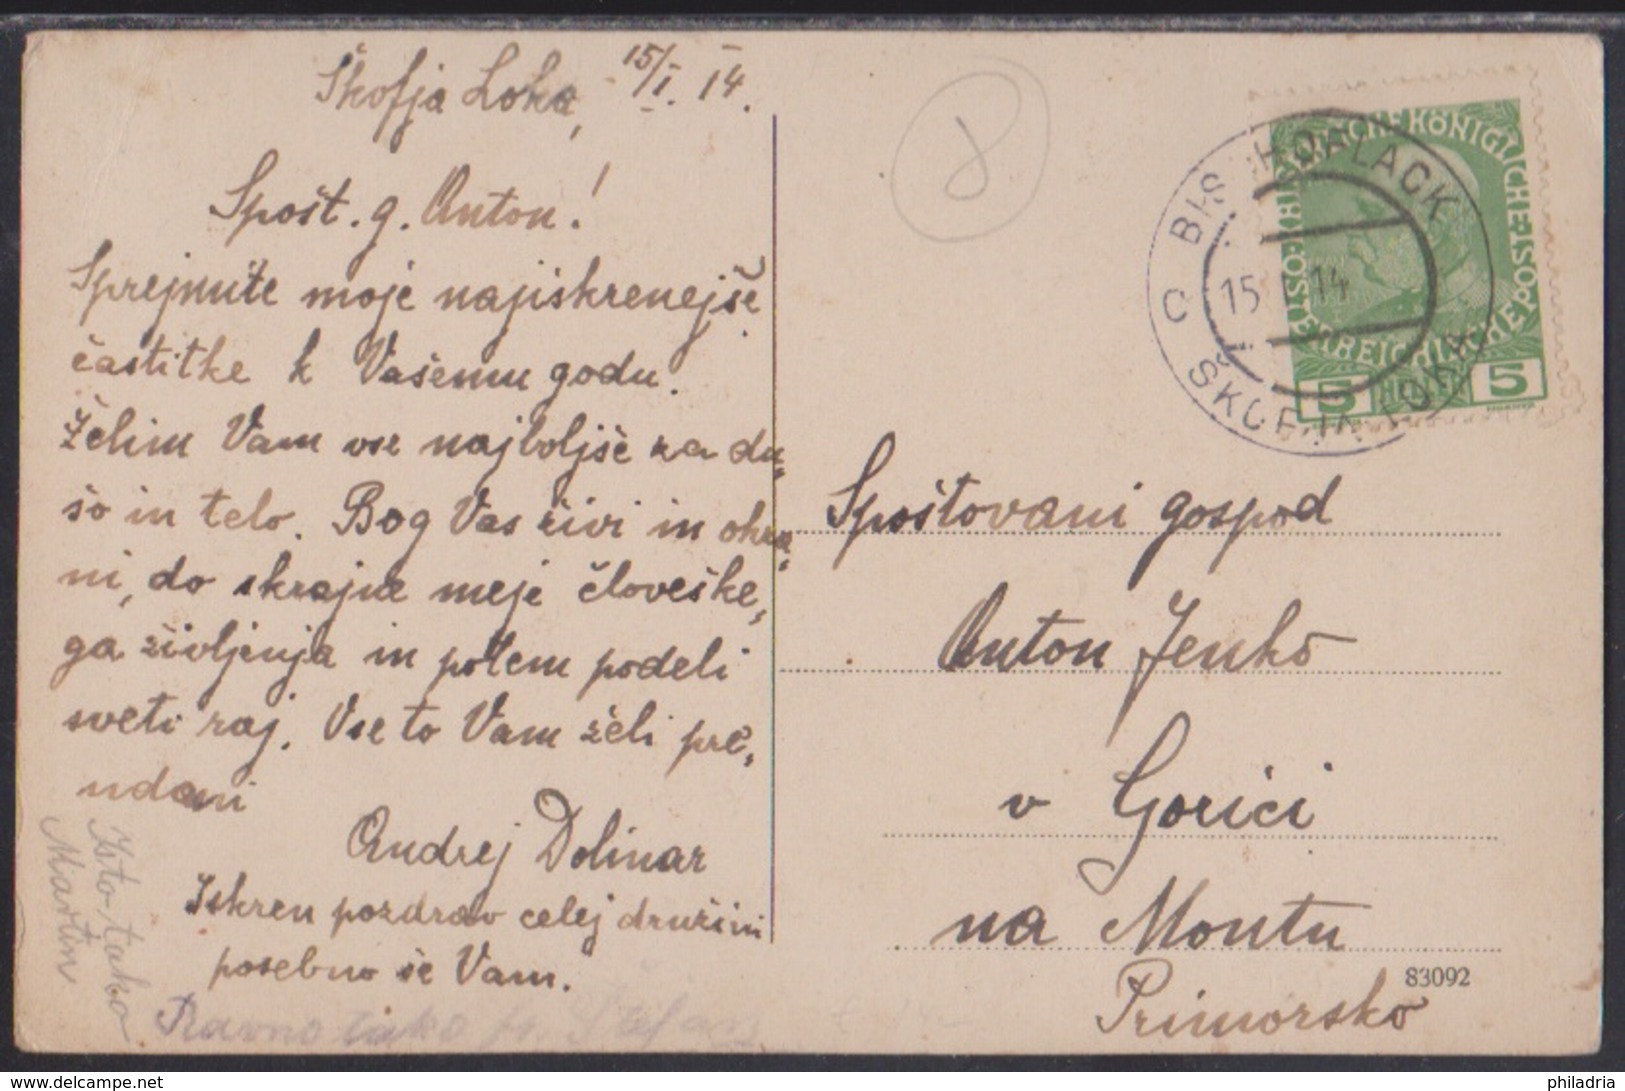 Škofja Loka, 15/I. 14.
Spošt. g. Anton!
Sprejmite moje najiskrenejše
častitke k Vašemu godu.
Želim Vam vse najboljše za du„
šo in telo. Bog Vas živi in ohra„
ni, do skrajne meje človeške„
ga življenja in potem podeli
sveti raj. Vse to Vam želi pre„
udani
Andrej Dolinar
Iskren pozdrav celej družini
posebno še Vam.
Isto tako
Martin
Ravno tako Štefan
8
BISCHOFLACK
C 15 I 14
ŠKOFJA LOKA
KAISERLICHE KÖNIGLICHE ÖSTERREICHISCHE POST
5 HELLER 5
Spoštovani gospod
Anton Jenko
v Gorici
na Montu
83092
Primorsko
philadria
https://www.delcampe.net